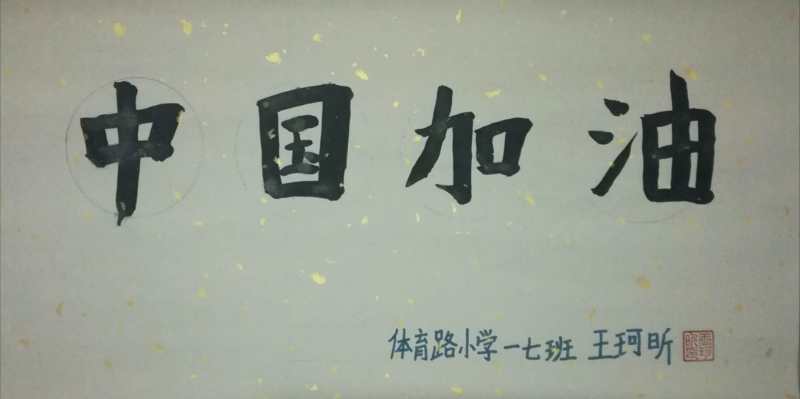 中国加油
体育路小学一七班 王珂昕